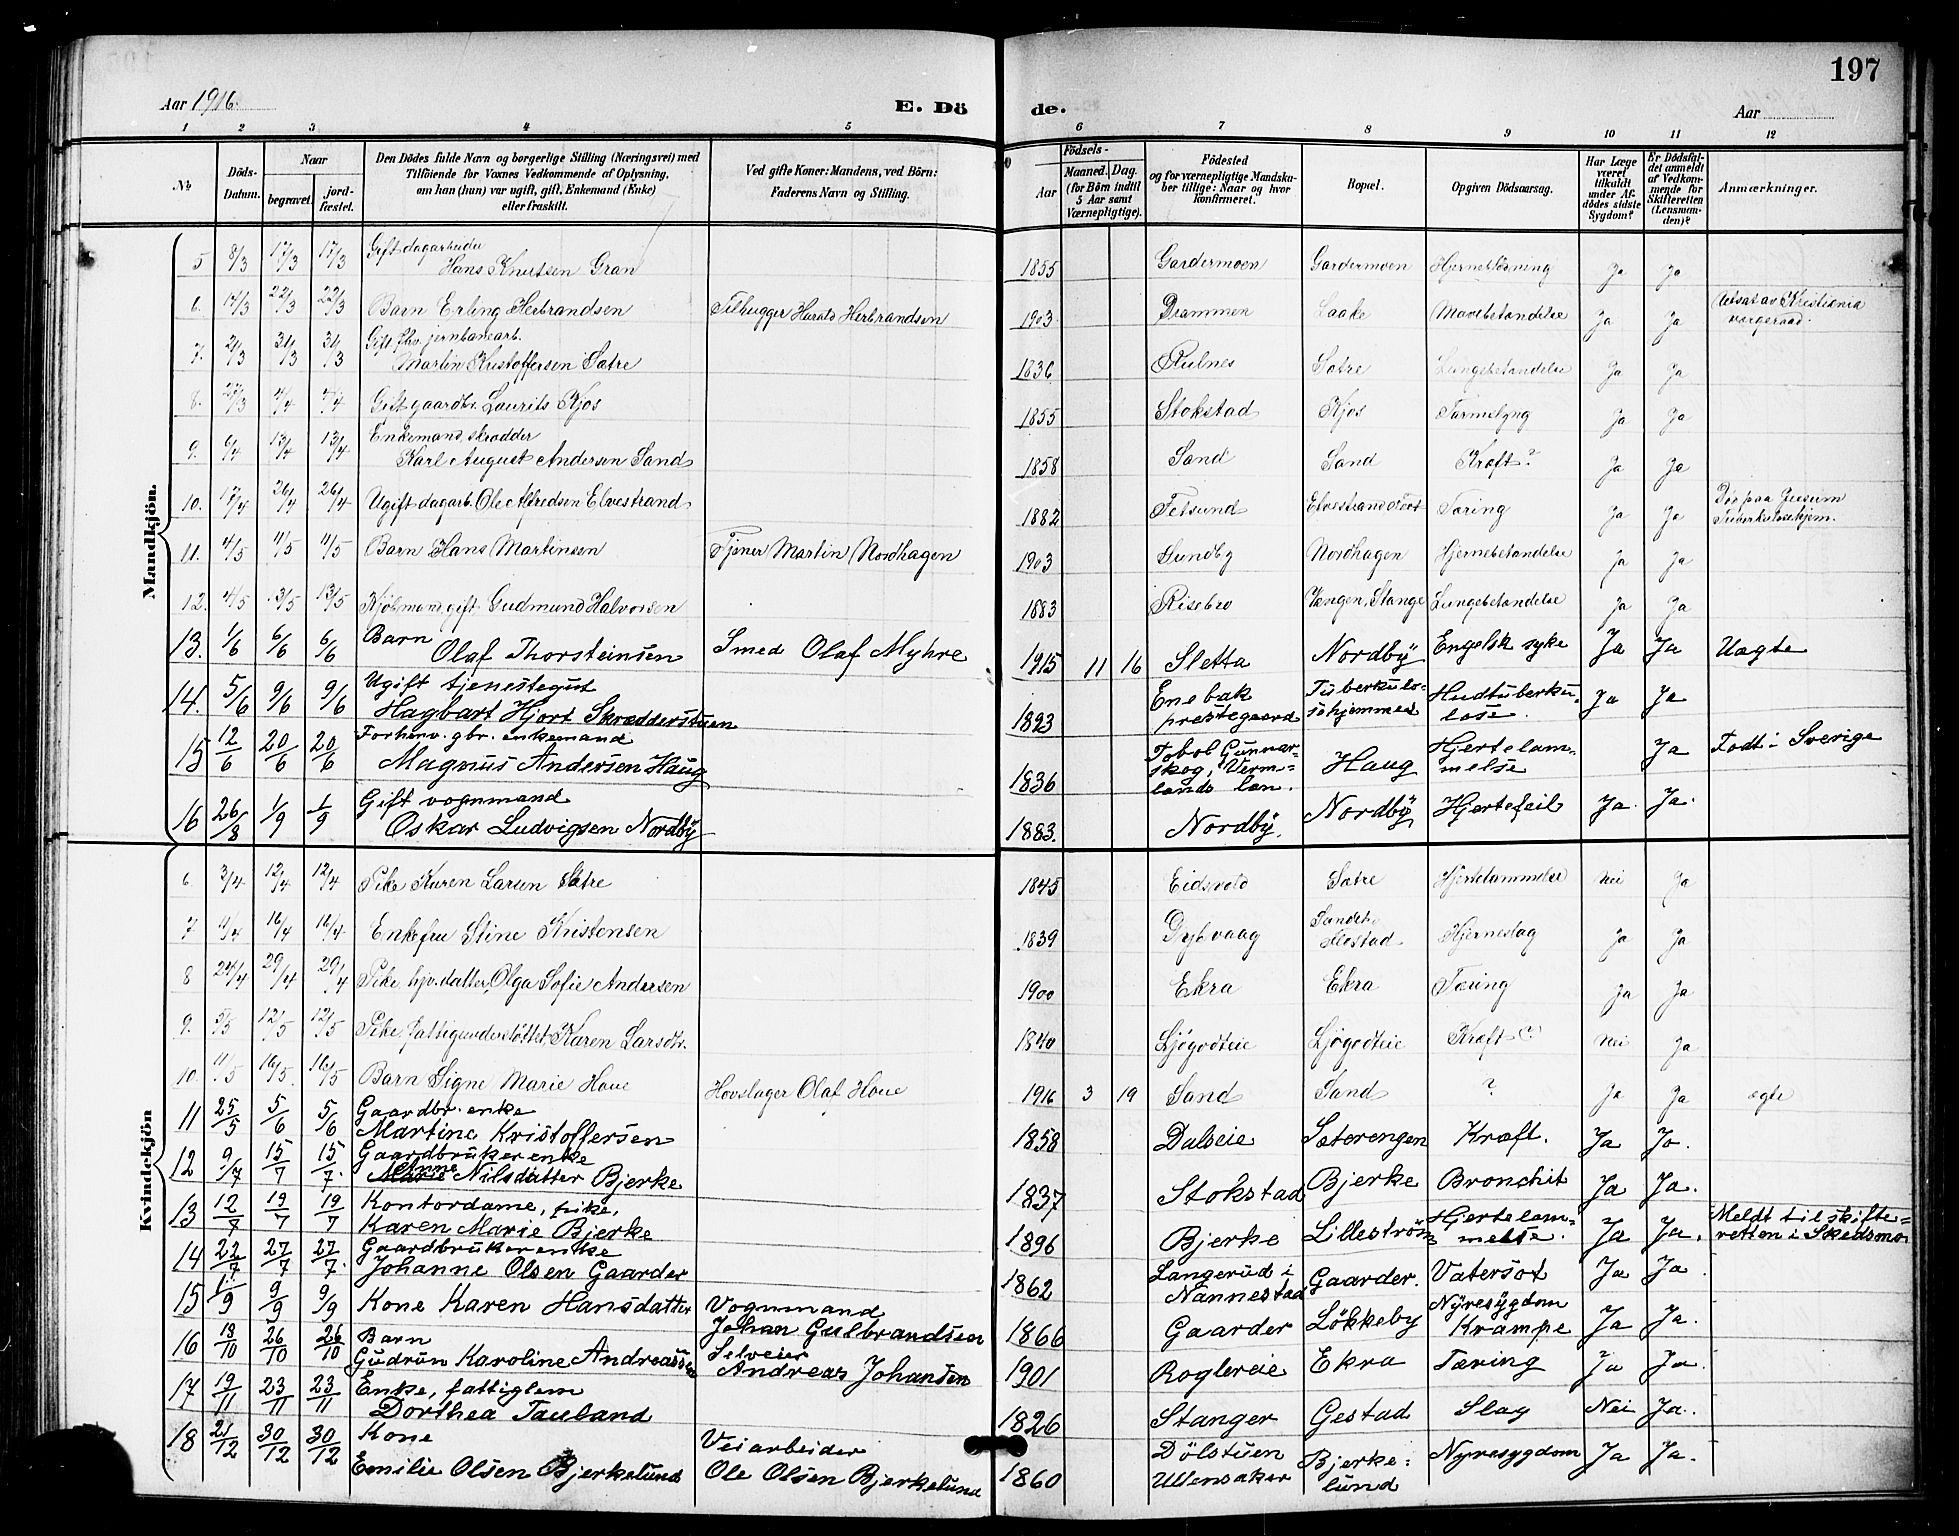 197
Aar 1916.
E. Dö
de.
Aar
1 2 3 4 5 6 7 8 9 10 11 12
No.
Döds-Datum.
Naar
begravet.
jordfæstet.
Den Dödes fulde Navn og borgerlige Stilling (Næringsvei) med
Tilföiende for Voxnes Vedkommende af Oplysning,
om han (hun) var ugift, gift, Enkemand (Enke)
eller fraskilt.
Ved gifte Koner: Mandens, ved Börn:
Faderens Navn og Stilling.
Födsels-
Aar
Maaned. Dag.
(for Börn indtil
5 Aar samt
Værnepligtige).
Födested
og for værnepligtige Mandska-
ber tillige: Naar og hvor
konfirmeret.
Bopæl.
Opgiven Dödsaarsag.
Har Læge
været
tilkaldt
under Af-
dödes sidste
Sygdom?
Er Dödsfal-
det anmeldt
af Vedkom-
mende for
Skifteretten
(Lensman-
den)?
Anmærkninger.
Mandkjön.
5 8/3 17/3 17/3 Gift dagarbeider
Hans Knutsen Gran 1855 Gardermoen Gardermoen Hjerneblødning Ja Ja
6. 14/3 22/3 22/3 Barn Erling Herbrandsen Tilhugger Harald Herbrandsen 1903 Drammen Laake Mavebetændelse Ja Ja Utsat av Kristiania
vergeraad.
7. 21/3 31/3 31/3 Gift fhv. jernbanearb.
Martin Kristoffersen Sætre 1836 Sætre Lungebetændelse Ja Ja
8. 27/3 4/4 4/4 Gift gaardbr. Laurits Kjos 1855 Stokstad Kjos Tarmslyng Ja Ja
9. 6/4 13/4 13/4 Enkemand, skrædder
Karl August Andersen Sand 1858 Sand Sand Kræft? Ja Ja
10. 17/4 26/4 26/4 Ugift dagarb. Ole Alfredsen Elvestrand 1882 Fetsund Elvestrand Tæring Ja Ja Død paa
Tuberkulosehjem.
11. 4/5 11/5 11/5 Barn Hans Martinsen Tjener Martin Nordhagen 1903 Sundby Nordhagen Hjernebetændelse Ja Ja
12. 4/5 13/5 13/5 Kjøbmand gift Gudmund Halvorsen 1883 Risebro Vengen, Stange Lungebetændelse Ja Ja
13. 1/6 6/6 6/6 Barn
Olaf Thorsteinsen Smed Olaf Myhre 1915 11 16 Sletta Nordby Engelsk syke Ja Ja Uægte
14. 5/6 9/6 9/6 Ugift tjenestegut
Hagbart Hjort Skrædderstuen 1893 Enebak
prestegaard Tuberkulo-
sehjemmet Hudtuberku-
lose. Ja Ja
15 12/6 20/6 20/6 Forhenv. gbr. enkemand
Magnus Andersen Haug 1836 Tobol Gunnar-
skog, Verm-
lands län. Haug Hjertelam-
melse Ja Født i Sverige
16 26/8 1/9 1/9 Gift vognmand
Oskar Ludvigsen Nordby 1883. Nordby. Nordby Hjertefeil Ja. Ja.
Kvindekjön
6 3/4 12/4 12/4 Pike Karen Larsen Sætre 1845 Eidsvold Sætre Hjertelammelse Nei Ja
7 11/4 16/4 16/4 Enkefru Stine Kristensen 1839 Dybvaag Hjerneslag Ja Ja
8 24/4 29/4 29/4 Pike, hjv. datter, Olga Sofie Andersen 1900 Ekra Ekra Tæring Ja Ja
9. 5/5 12/5 12/5 Pike, fattigunderstøttet Karen Larsdtr. 1840 Ljøgodteie Ljøgodteie Kræft (?) Nei Ja
10. 11/5 16/5 16/5 Barn Signe Marie Hove Hovslager Olaf Hove 1916 3 19 Sand Sand ? Ja Ja ægte
11 25/5 5/6 5/6 Gaardbr. enke
Martine Kristoffersen 1858 Dalseie Sæterengen Kræft. Ja Ja.
12 9/7 15/7 15/7. Gaardbrukerenke
Anne Nilsdatter Bjerke 1837 Stokstad Bjerke Bronchit Ja Ja.
13 12/7 19/7 19/7 Kontordame, pike,
Karen Marie Bjerke 1896 Bjerke Lillestrøm Hjertelam-
melse. Ja Ja. Meldt til skifte-
retten i Skedsmo
14 22/7 27/7 27/7. Gaardbrukerenke
Johanne Olsen Gaarder 1862 Langerud i
Nannestad Gaarder. Vatersot Ja Ja
15 1/9 9/9 9/9 Kone Karen Hansdatter Vognmand
Johan Gulbrandsen 1866 Gaarder Løkkeby Nyresygdom
Krampe Ja Ja.
16 18/10 26/10 26/10 Barn
Gudrun Karoline Andreassen Selveier
Andreas Johansen 1901 Roglereie Ekra Tæring Ja Ja.
17 19/11 23/11 23/11 Enke, fattiglem
Dorthea Tauland 1826 Stanger Gestad Slag Nei Ja.
18 21/12 30/12 30/12 Kone
Emilie Olsen Bjerkelund Veiarbeider
Ole Olsen Bjerkelund 1860 Dølstuen
Ullensaker Bjerke-
lund Nyresygdom Ja Ja.